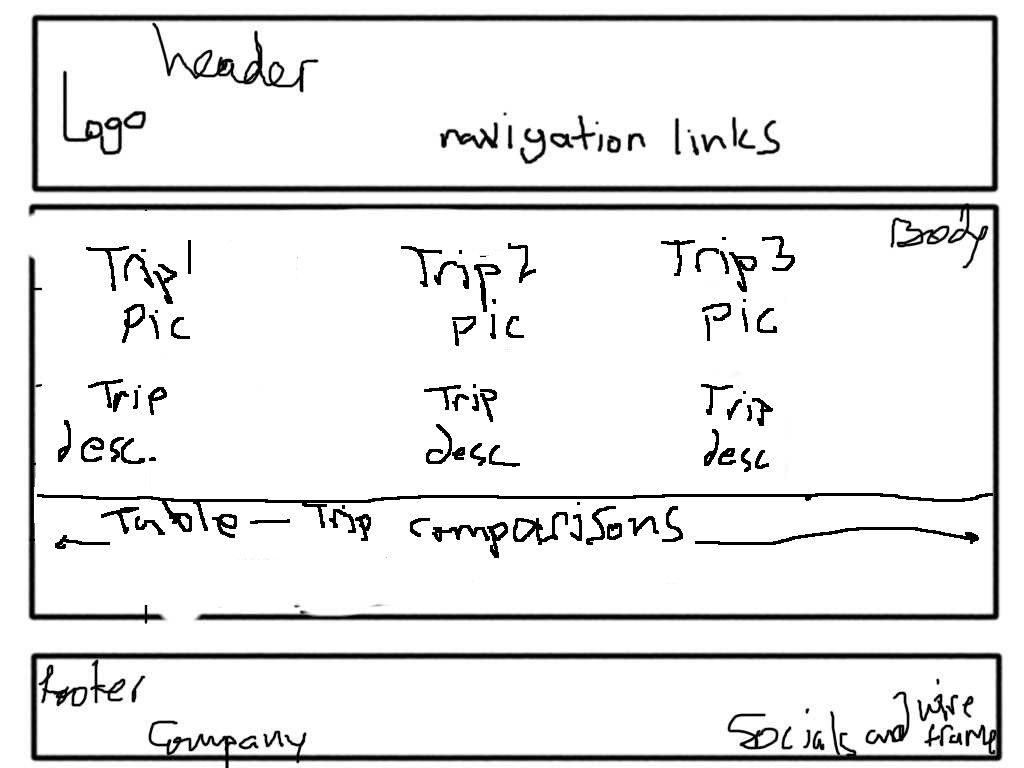 header
Logo
navigation links
Body
Trip 1 Trip 2 Trip 3
pic pic pic
Trip Trip Trip
desc. desc desc
Table - Trip comparisons
footer
Company
Socials and wire
frame